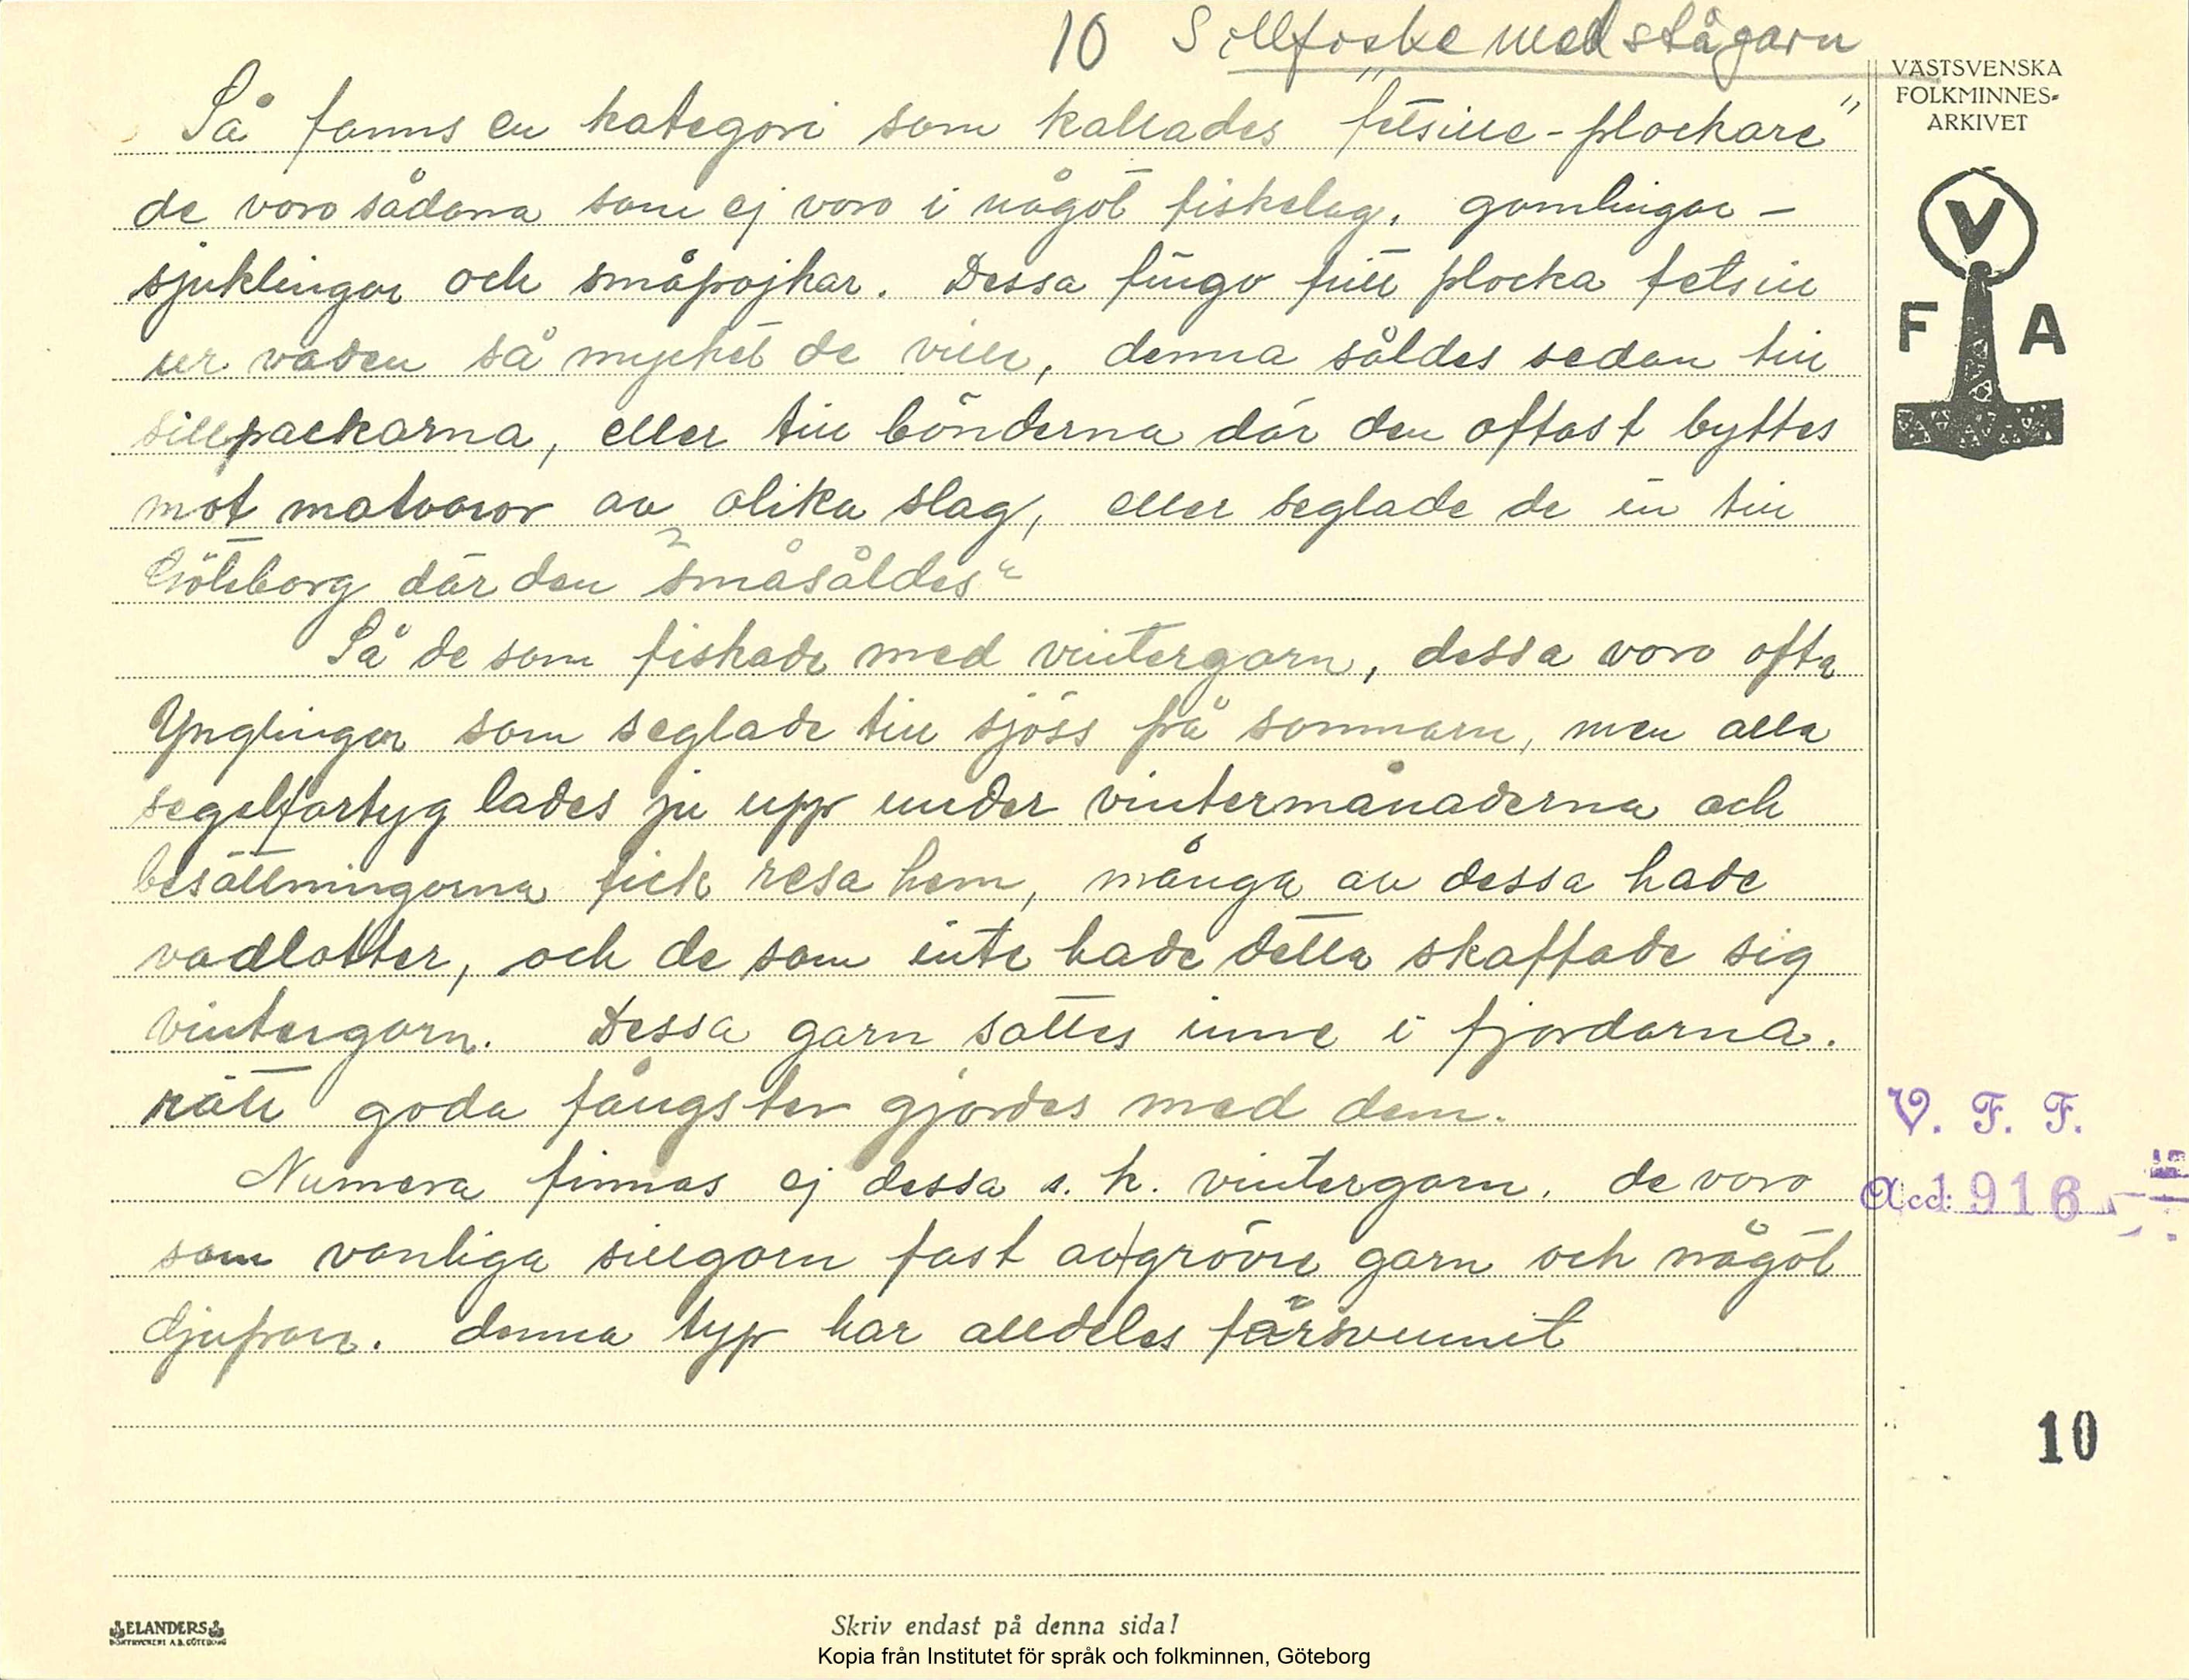 10 Sillfiske med stågarn
Så fanns en kategori som kallades "fetsill-plockare"
de voro sådana som ej voro i något fiskelag, gamlingar -
sjuklingar och småpojkar. Dessa fingo fritt plocka fetsill
ur vaden så mycket de ville, denna såldes sedan till
sillpackarna, eller till bönderna där den oftast byttes
mot matvaror av olika slag, eller seglade de in till
Göteborg där den "småsåldes"
Så de som fiskade med vintergarn, dessa voro ofta
Ynglingar som seglade till sjöss på sommarn, men alla
segelfartyg lades ju upp under vintermånaderna och
besättningarna fick resa hem, många av dessa hade
vadlotter, och de som inte hade detta skaffade sig
vintergarn. Dessa garn sattes inne i fjordarna.
rätt goda fångster gjordes med dem.
Numera finnas ej dessa s. k. vintergarn. de voro
som vanliga sillgarn fast av grövre garn och något
djupare. denna typ har alldeles försvunnit
VÄSTSVENSKA
FOLKMINNES-
ARKIVET
V
F A
V. F. F.
Acc: 1916
10
ELANDERS
BOKTRYCKERI A.B. GÖTEBORG
Skriv endast på denna sida!
Kopia från Institutet för språk och folkminnen, Göteborg